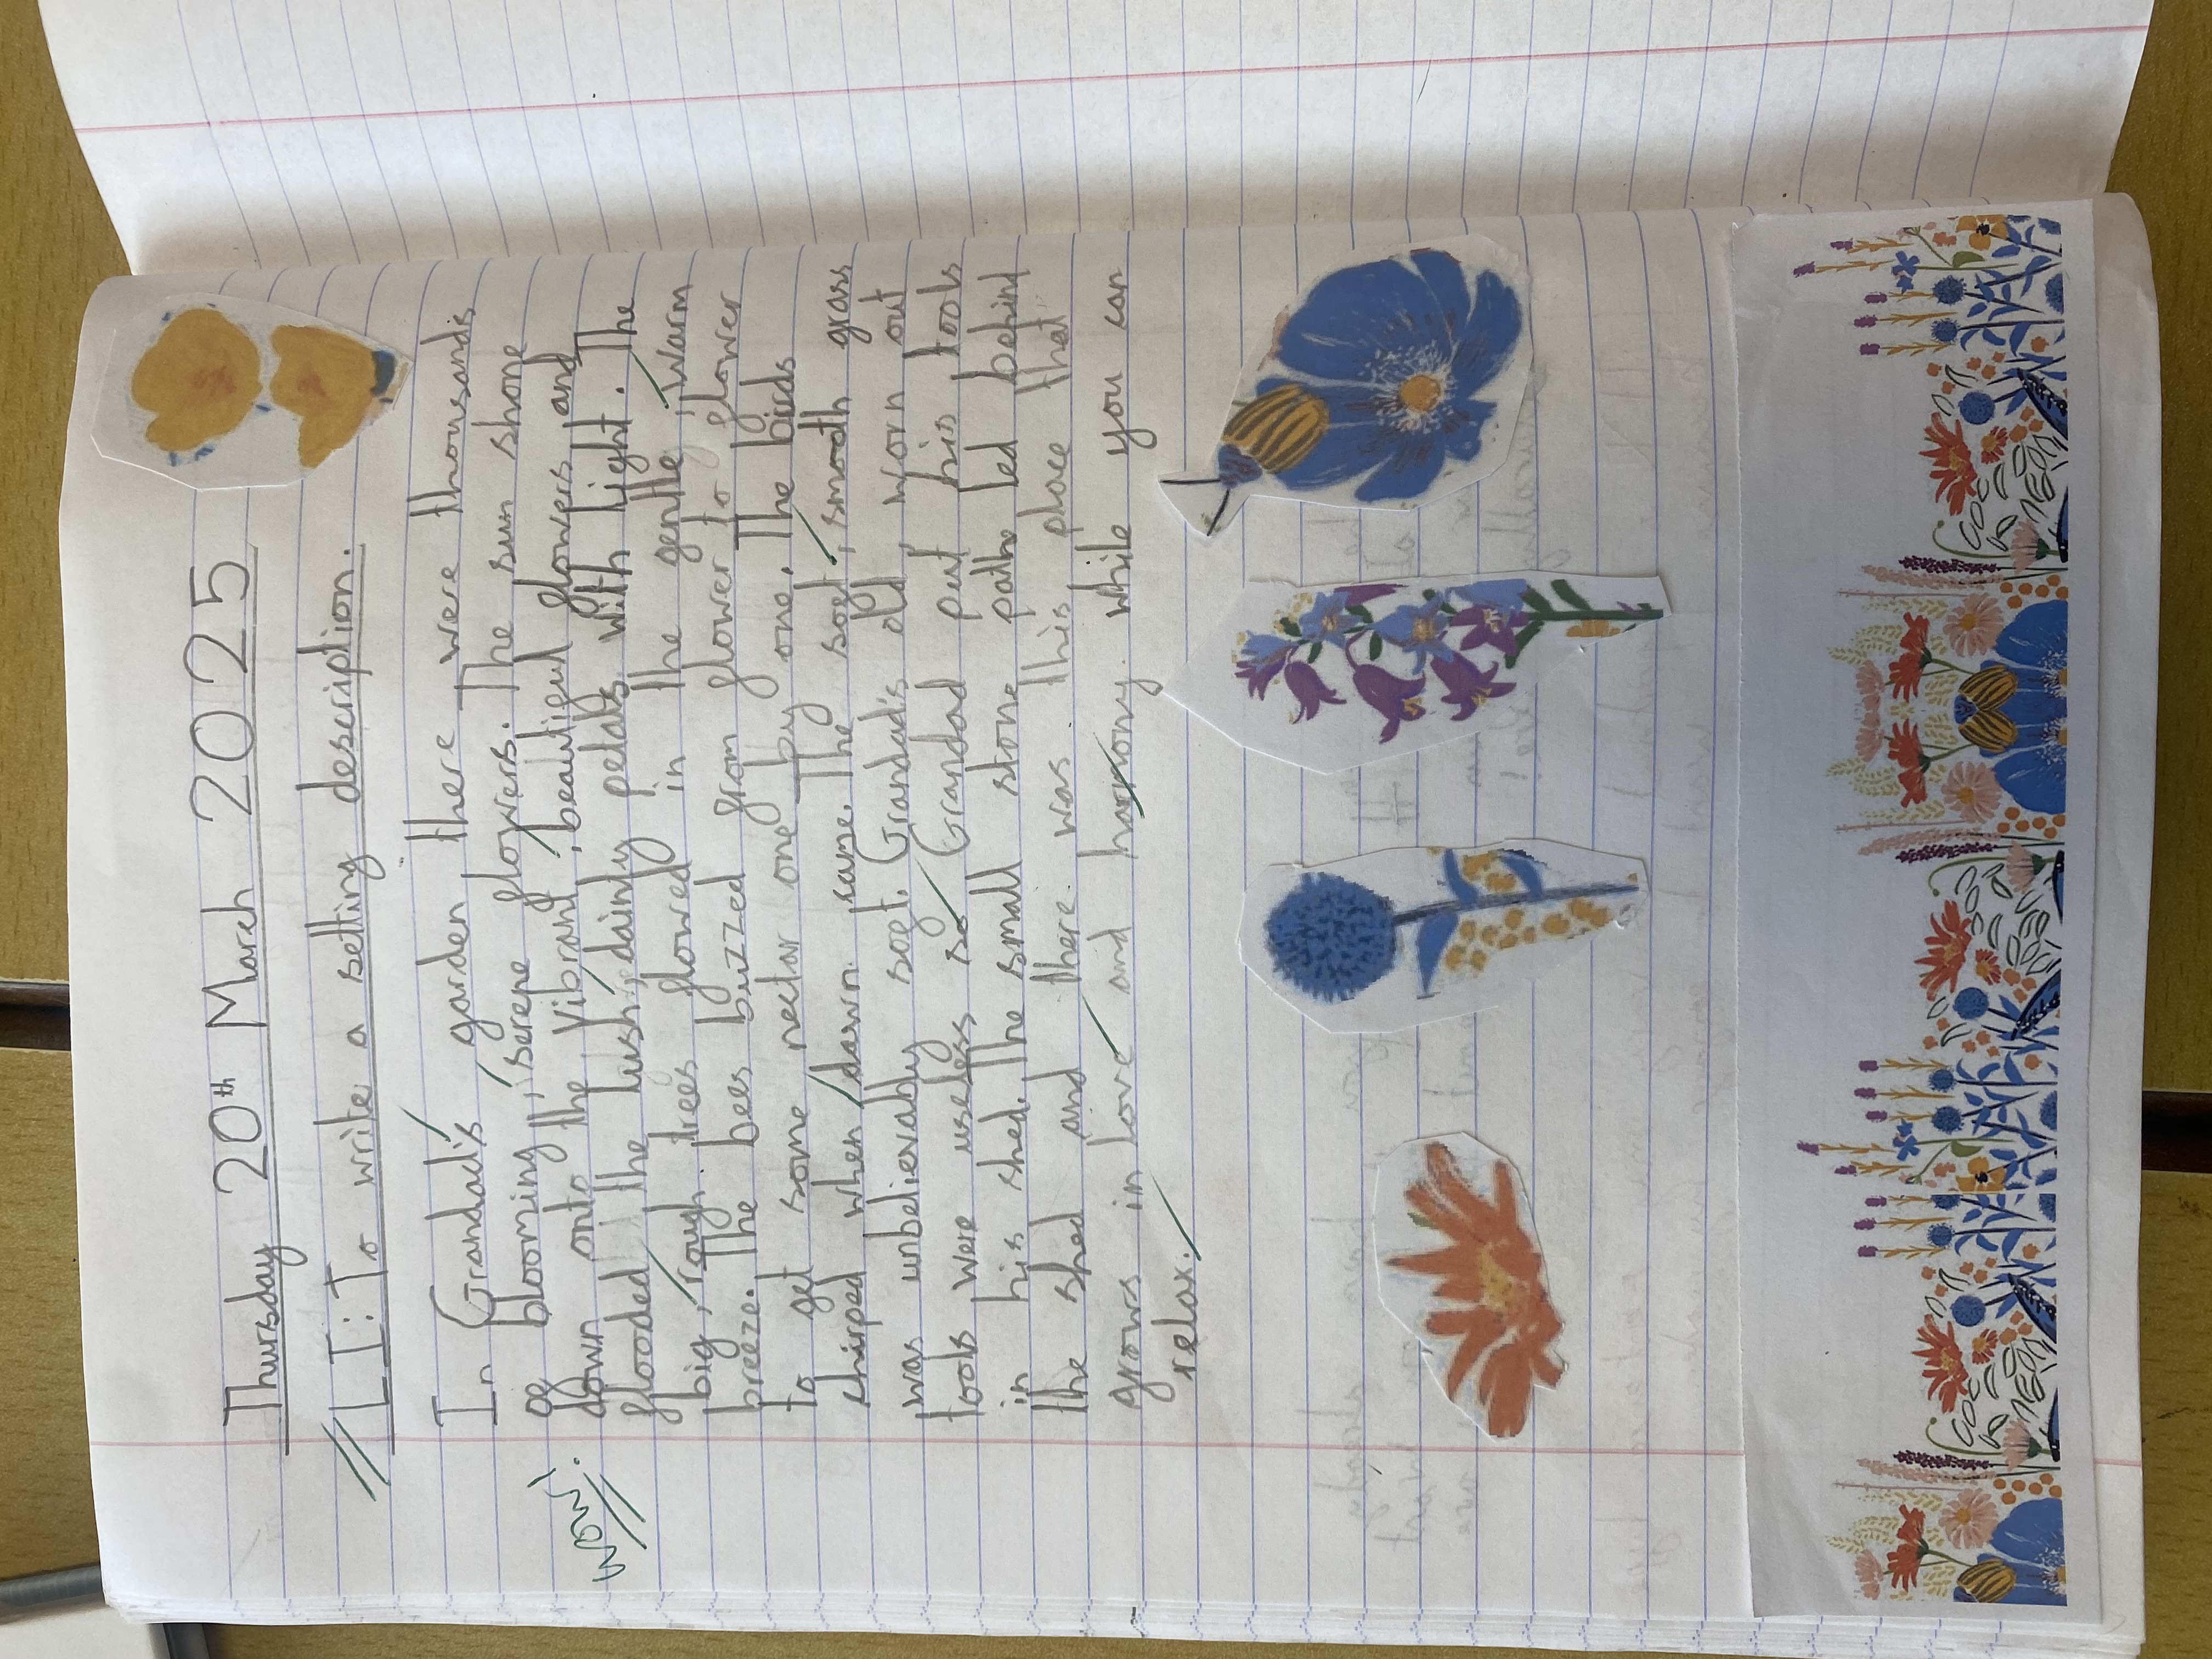 Thursday 20th March 2025
LI: To write a setting description.
In Grandad's garden there were thousands
of blooming, serene flowers. The sun shone
down onto the vibrant, beautiful flowers and
flooded the lush, dainty petals with light. The
big, rough trees flowed in the gentle, warm
breeze. The bees buzzed from flower to flower
to get some nectar one by one. The birds
chirped when dawn same. The soft, smooth grass
was unbelievably soft. Grandad's old, worn out
tools were useless so Grandad put his tools
in his shed. The small stone pathe led behind
the shed and there was this place that
grows in love and harmony while you can
relax.
wow!